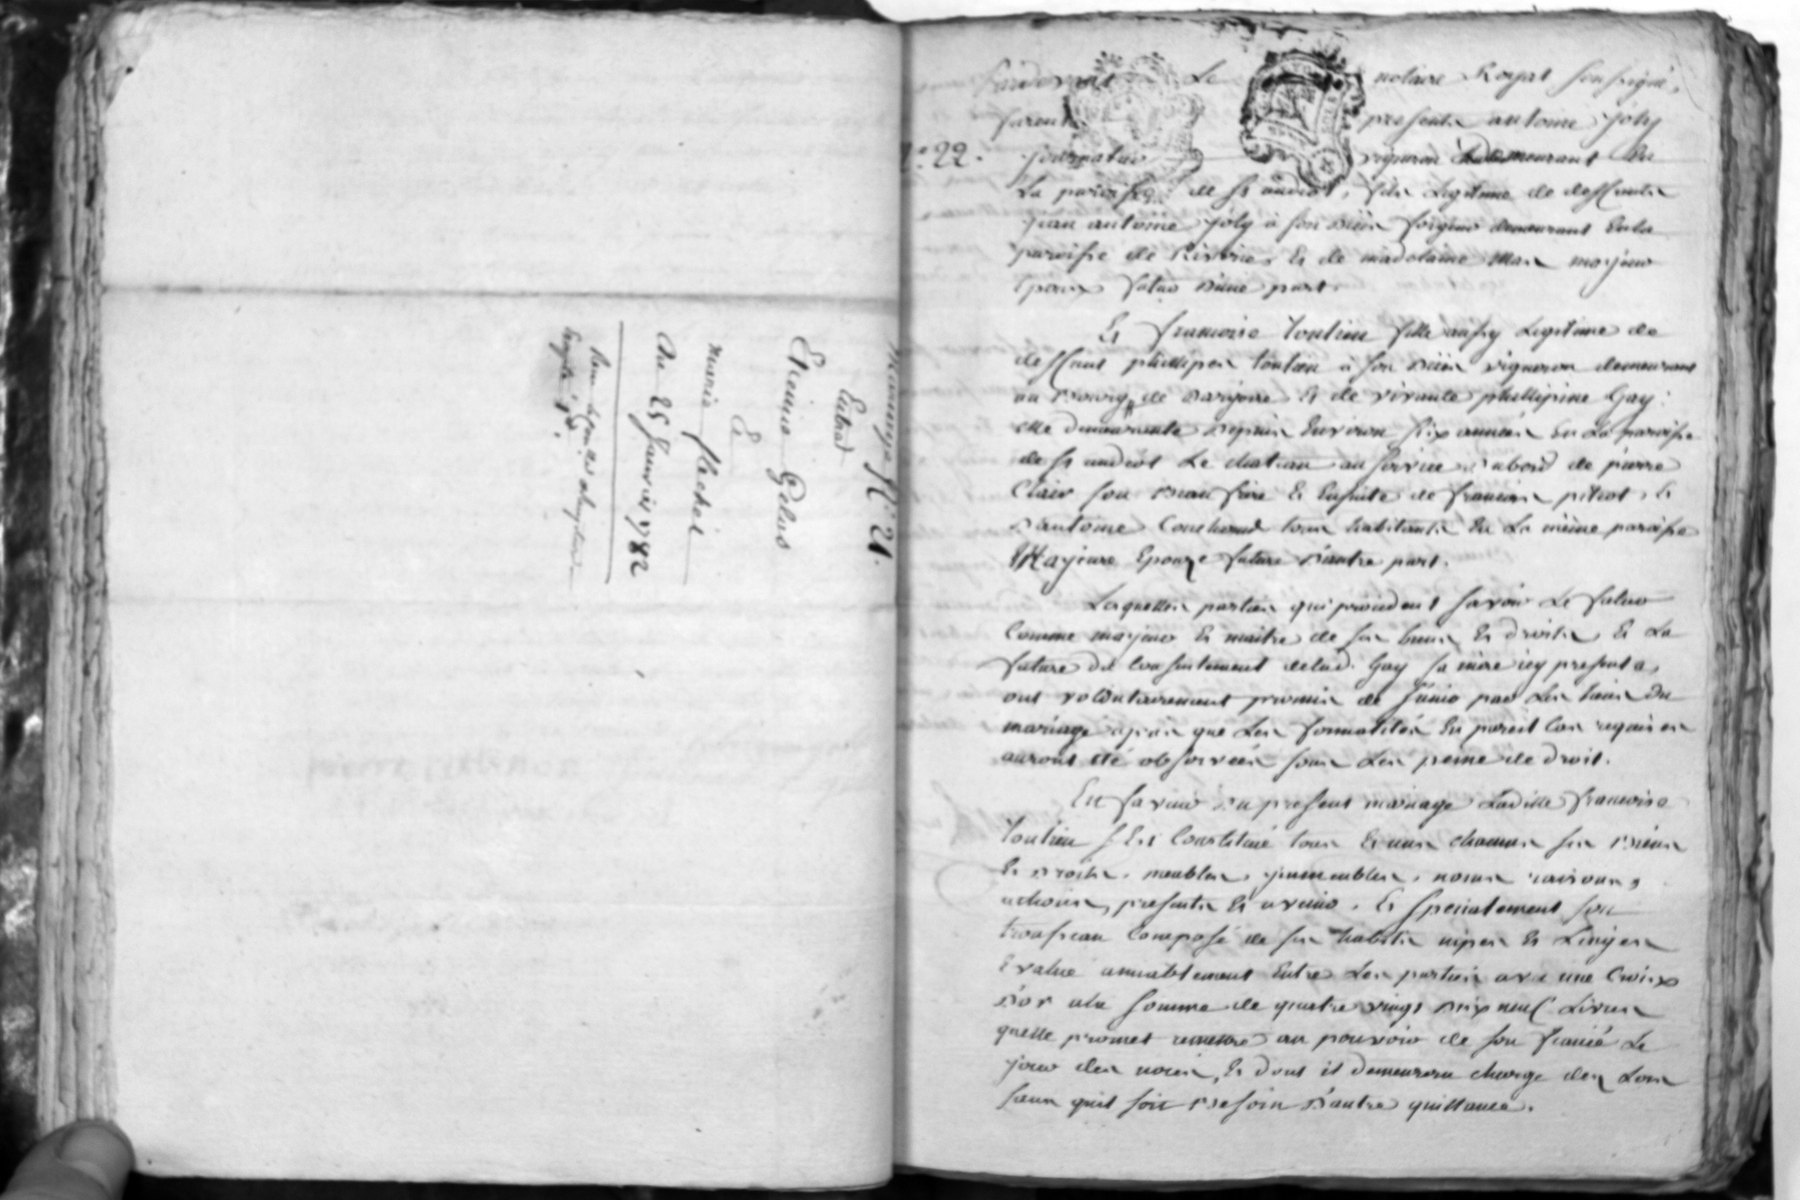 Mariage N° 21.
Entre
Etienne Gelas
Et
marie flechet
Du 25 Janvier 1782
Pardevant Le notaire Royal soussigné,
furent presents antoine Joly
N° 22.
journalier vigneron demeurant en
La paroisse de St andeol, fils Legitime de deffunts
jean antoine Joly a son vivan demeurant En la
paroisse de Riverie, Et de madelaine mas majeur
Epoux futur D'une part
Et francoise toulieu fille aussy Legitime de
deffunt phillipes toulieu a son vivan vigneron demeurant
au Bourg de et de vivante phillipine Gay
elle demeurante Depuis Environ six années En La paroisse
de St andeol Le chateau au service d'abord de pierre
Clair son Beau frere Et Ensuite de francois pitiot, Et
D'antoine tous habitants En La même paroisse
Majeure Epouze future D'autre part.
Lesquelles parties qui procedent savoir Le futur
Comme majeur Et maitre de ses biens Et droits Et La
future du Consentement de lad. Gay sa mere icy presente,
ont volontairement promis de s'unir par Les liens du
mariage apres que Les formalités En pareil Cas requises
auront été observées sous Les peine de droit.
En faveur Du present mariage Ladite francoise
toulieu s'Est Constitué tous Et uns chacuns ses Biens
Et Droits, meubles, jmmeubles, noms raisons,
actions, presents Et avenir, Et specialement son
trousseau Composé de ses habits nipes Et Linges
Evalué amiablement Entre Les parties avec une Croix
D'or a la somme de quatre vingt Dix neuf Livres
quelle promet remettre au pouvoir de son fiancé Le
jour des noces, Et dont il demeurera chargé des Lors
sans quil soit Besoin D'autre quittance.